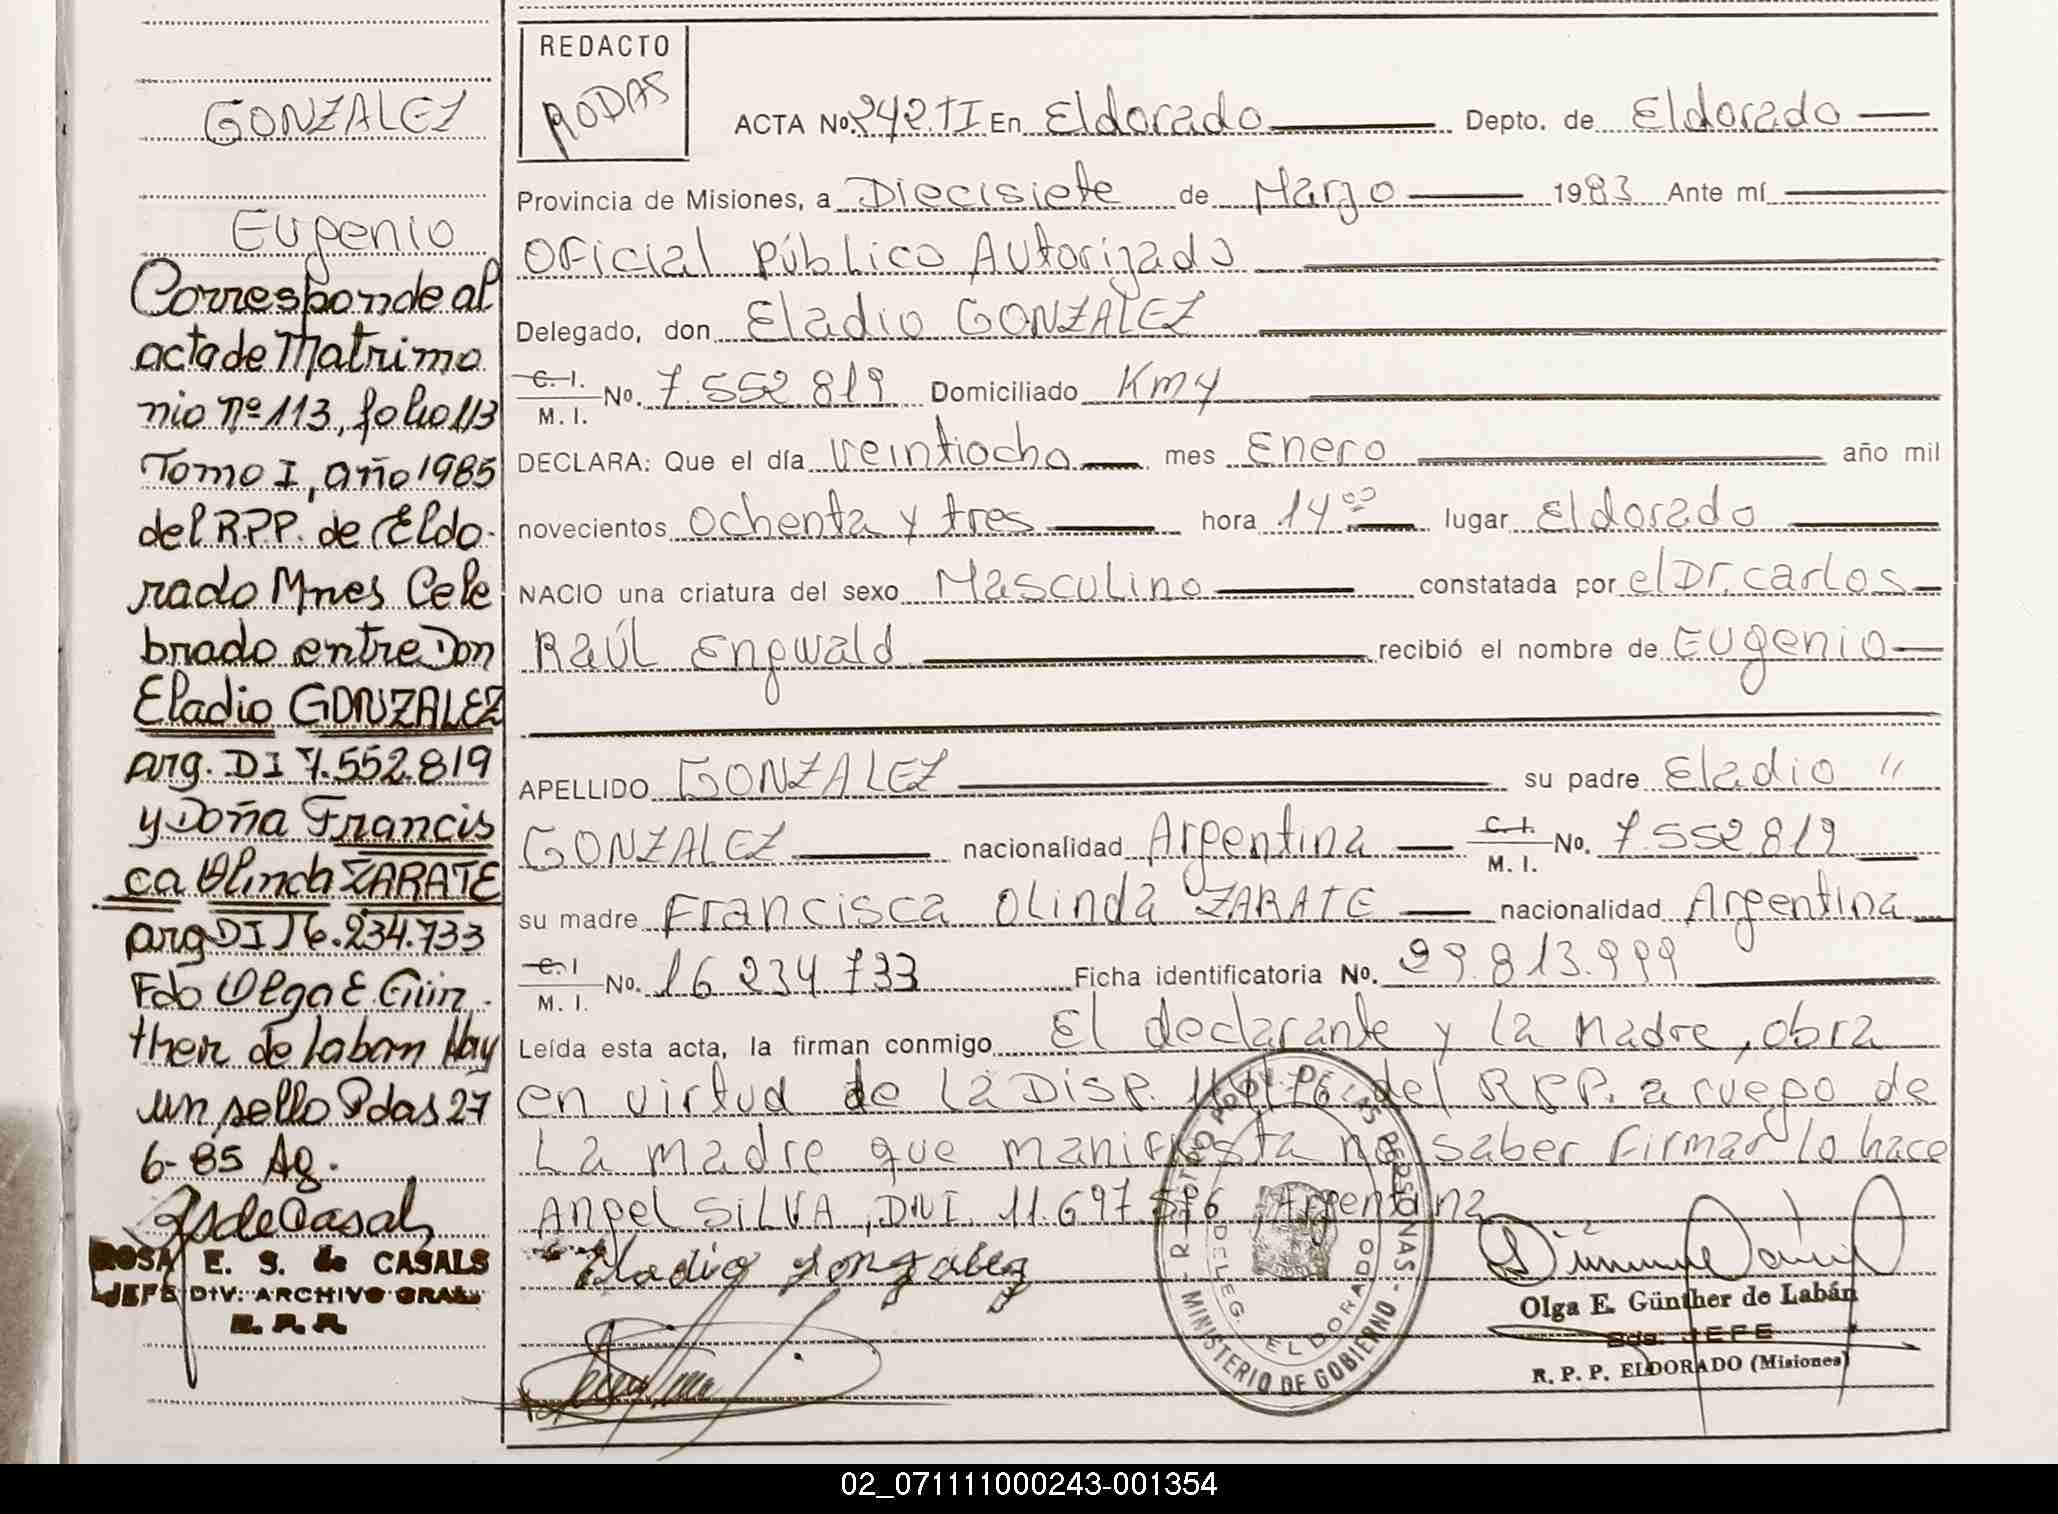 GONZALEZ
Eugenio
Corresponde al
acta de Matrimo
nio Nº 113, folio 113
Tomo I, año 1985
del R.P.P. de Eldo-
rado Mnes Cele
brado entre Don
Eladio GONZALEZ
arg. DI 7.552.819
y Doña Francis
ca Olinda ZARATE
arg DI 16.234.733
Fdo Olga E. Gün-
ther de Laban Hay
un sello Pdas 27
6-85 Ag.
ROSA E. S. de CASALS
JEFE DIV. ARCHIVO GRAL.
R. P. P.
REDACTO
RODAS
ACTA No. 242.TI En Eldorado Depto. de Eldorado
Provincia de Misiones, a Diecisiete de Marzo 1983 Ante mí
Oficial Público Autorizado
Delegado, don Eladio GONZALEZ
C. I. / M. I. No. 7.552.819 Domiciliado Km 4
DECLARA: Que el día veintiocho mes Enero año mil
novecientos ochenta y tres hora 14 00 lugar Eldorado
NACIO una criatura del sexo Masculino constatada por el Dr. Carlos
Raúl Engwald recibió el nombre de Eugenio
APELLIDO GONZALEZ su padre Eladio "
GONZALEZ nacionalidad Argentina C. I. / M. I. No. 7.552.819
su madre Francisca Olinda ZARATE nacionalidad Argentina
C. I / M. I. No. 16 234 733 Ficha identificatoria No. 29.813.999
Leída esta acta, la firman conmigo El declarante y la madre, obra
en virtud de la Disp. del R.P.P. a ruego de
La madre que manifiesta no saber firmar lo hace
Angel SILVA, DNI. 11.697. Argentina
Eladio Gonzalez
REGISTRO PROV. DE LAS PERSONAS - MINISTERIO DE GOBIERNO -
DELEG. ELDORADO
Olga E. Günther de Labán
JEFE
R. P. P. ELDORADO (Misiones)
02_071111000243-001354